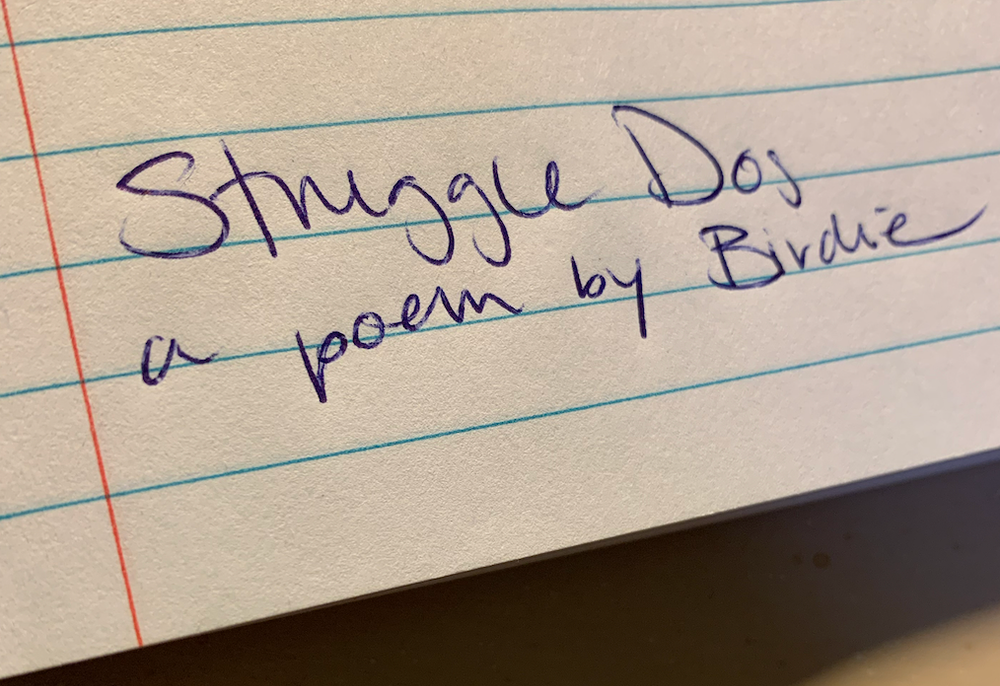 Struggle Dog
a poem by Birdie